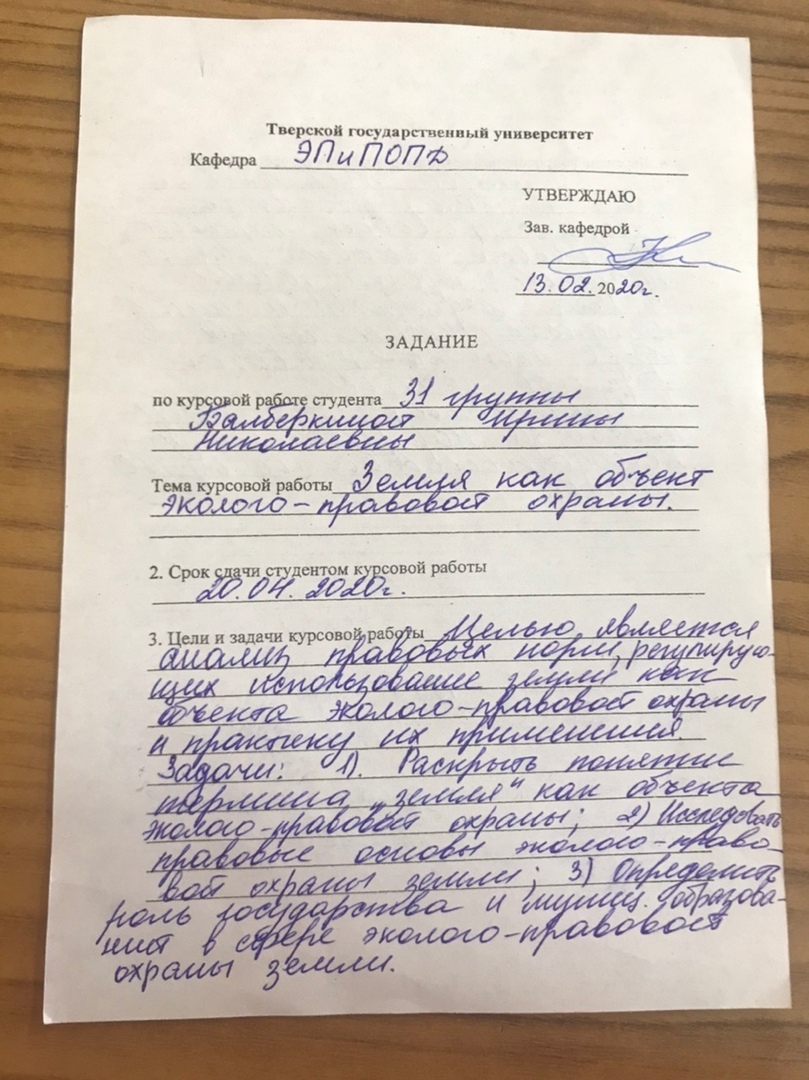 Тверской государственный университет
Кафедра ЭПиПОПД
УТВЕРЖДАЮ
Зав. кафедрой
13.02.2020г.
ЗАДАНИЕ
по курсовой работе студента 31 группы
Балберкиной Ирины
Николаевны
Тема курсовой работы Земля как объект
эколого-правовой охраны.
2. Срок сдачи студентом курсовой работы
20.04.2020г.
3. Цели и задачи курсовой работы Целью является
анализ правовых норм, регулирую-
щих использование земли как
объекта эколого-правовой охраны
и практику их применения
Задачи: 1). Раскрыть понятие
термина „земля" как объекта
эколого-правовой охраны; 2) Исследовать
правовые основы эколого-право-
вой охраны земли; 3) Определить
роль государства и муниц. образова-
ний в сфере эколого-правовой
охраны земли.